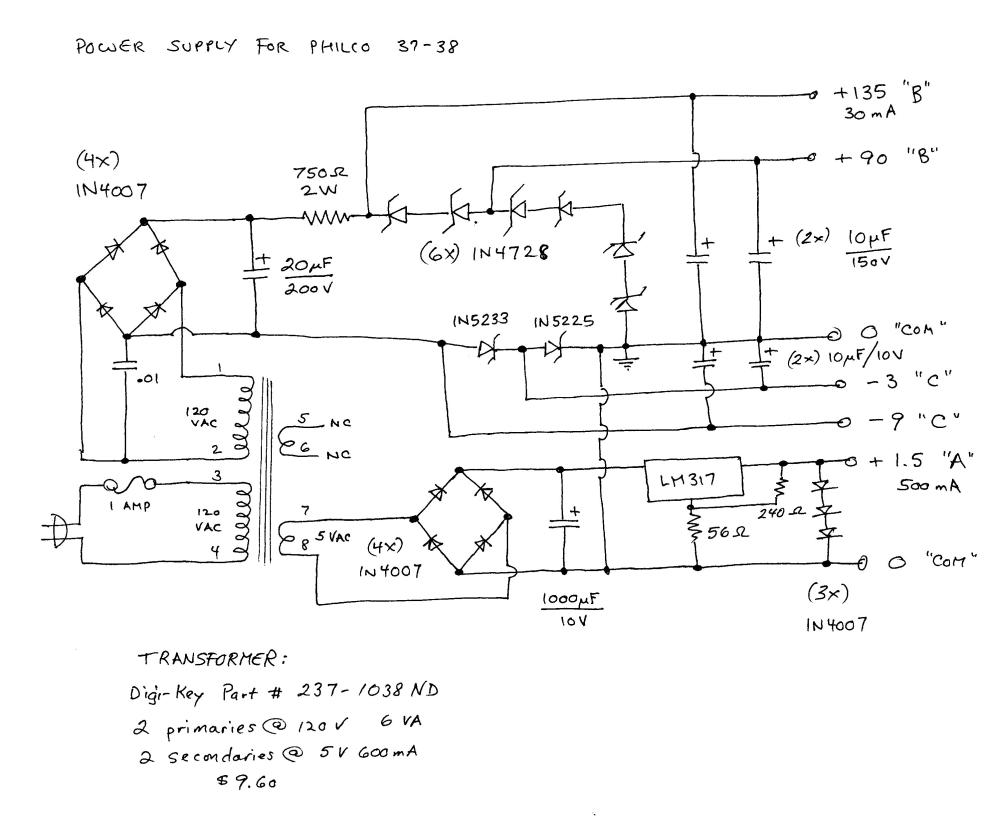 POWER SUPPLY FOR PHILCO 37-38
+135 "B"
30 mA
+ 90 "B"
(4x)
IN4007
750Ω
2W
(6x) IN4728
+
20µF
200V
+
+
(2x) 10µF
150V
IN5233 IN5225
0 "COM"
+
+
(2x) 10µF/10V
- 3 "C"
- 9 "C"
.01
1
120
VAC
2
5 NC
6 NC
3
1 AMP
120
VAC
4
7
8 5 VAC
(4x)
IN4007
+
1000µF
10V
LM317
240 Ω
56Ω
+ 1.5 "A"
500 mA
0 "COM"
(3x)
IN4007
TRANSFORMER:
Digi-Key Part # 237-1038 ND
2 primaries @ 120 V 6 VA
2 secondaries @ 5V 600mA
$9.60